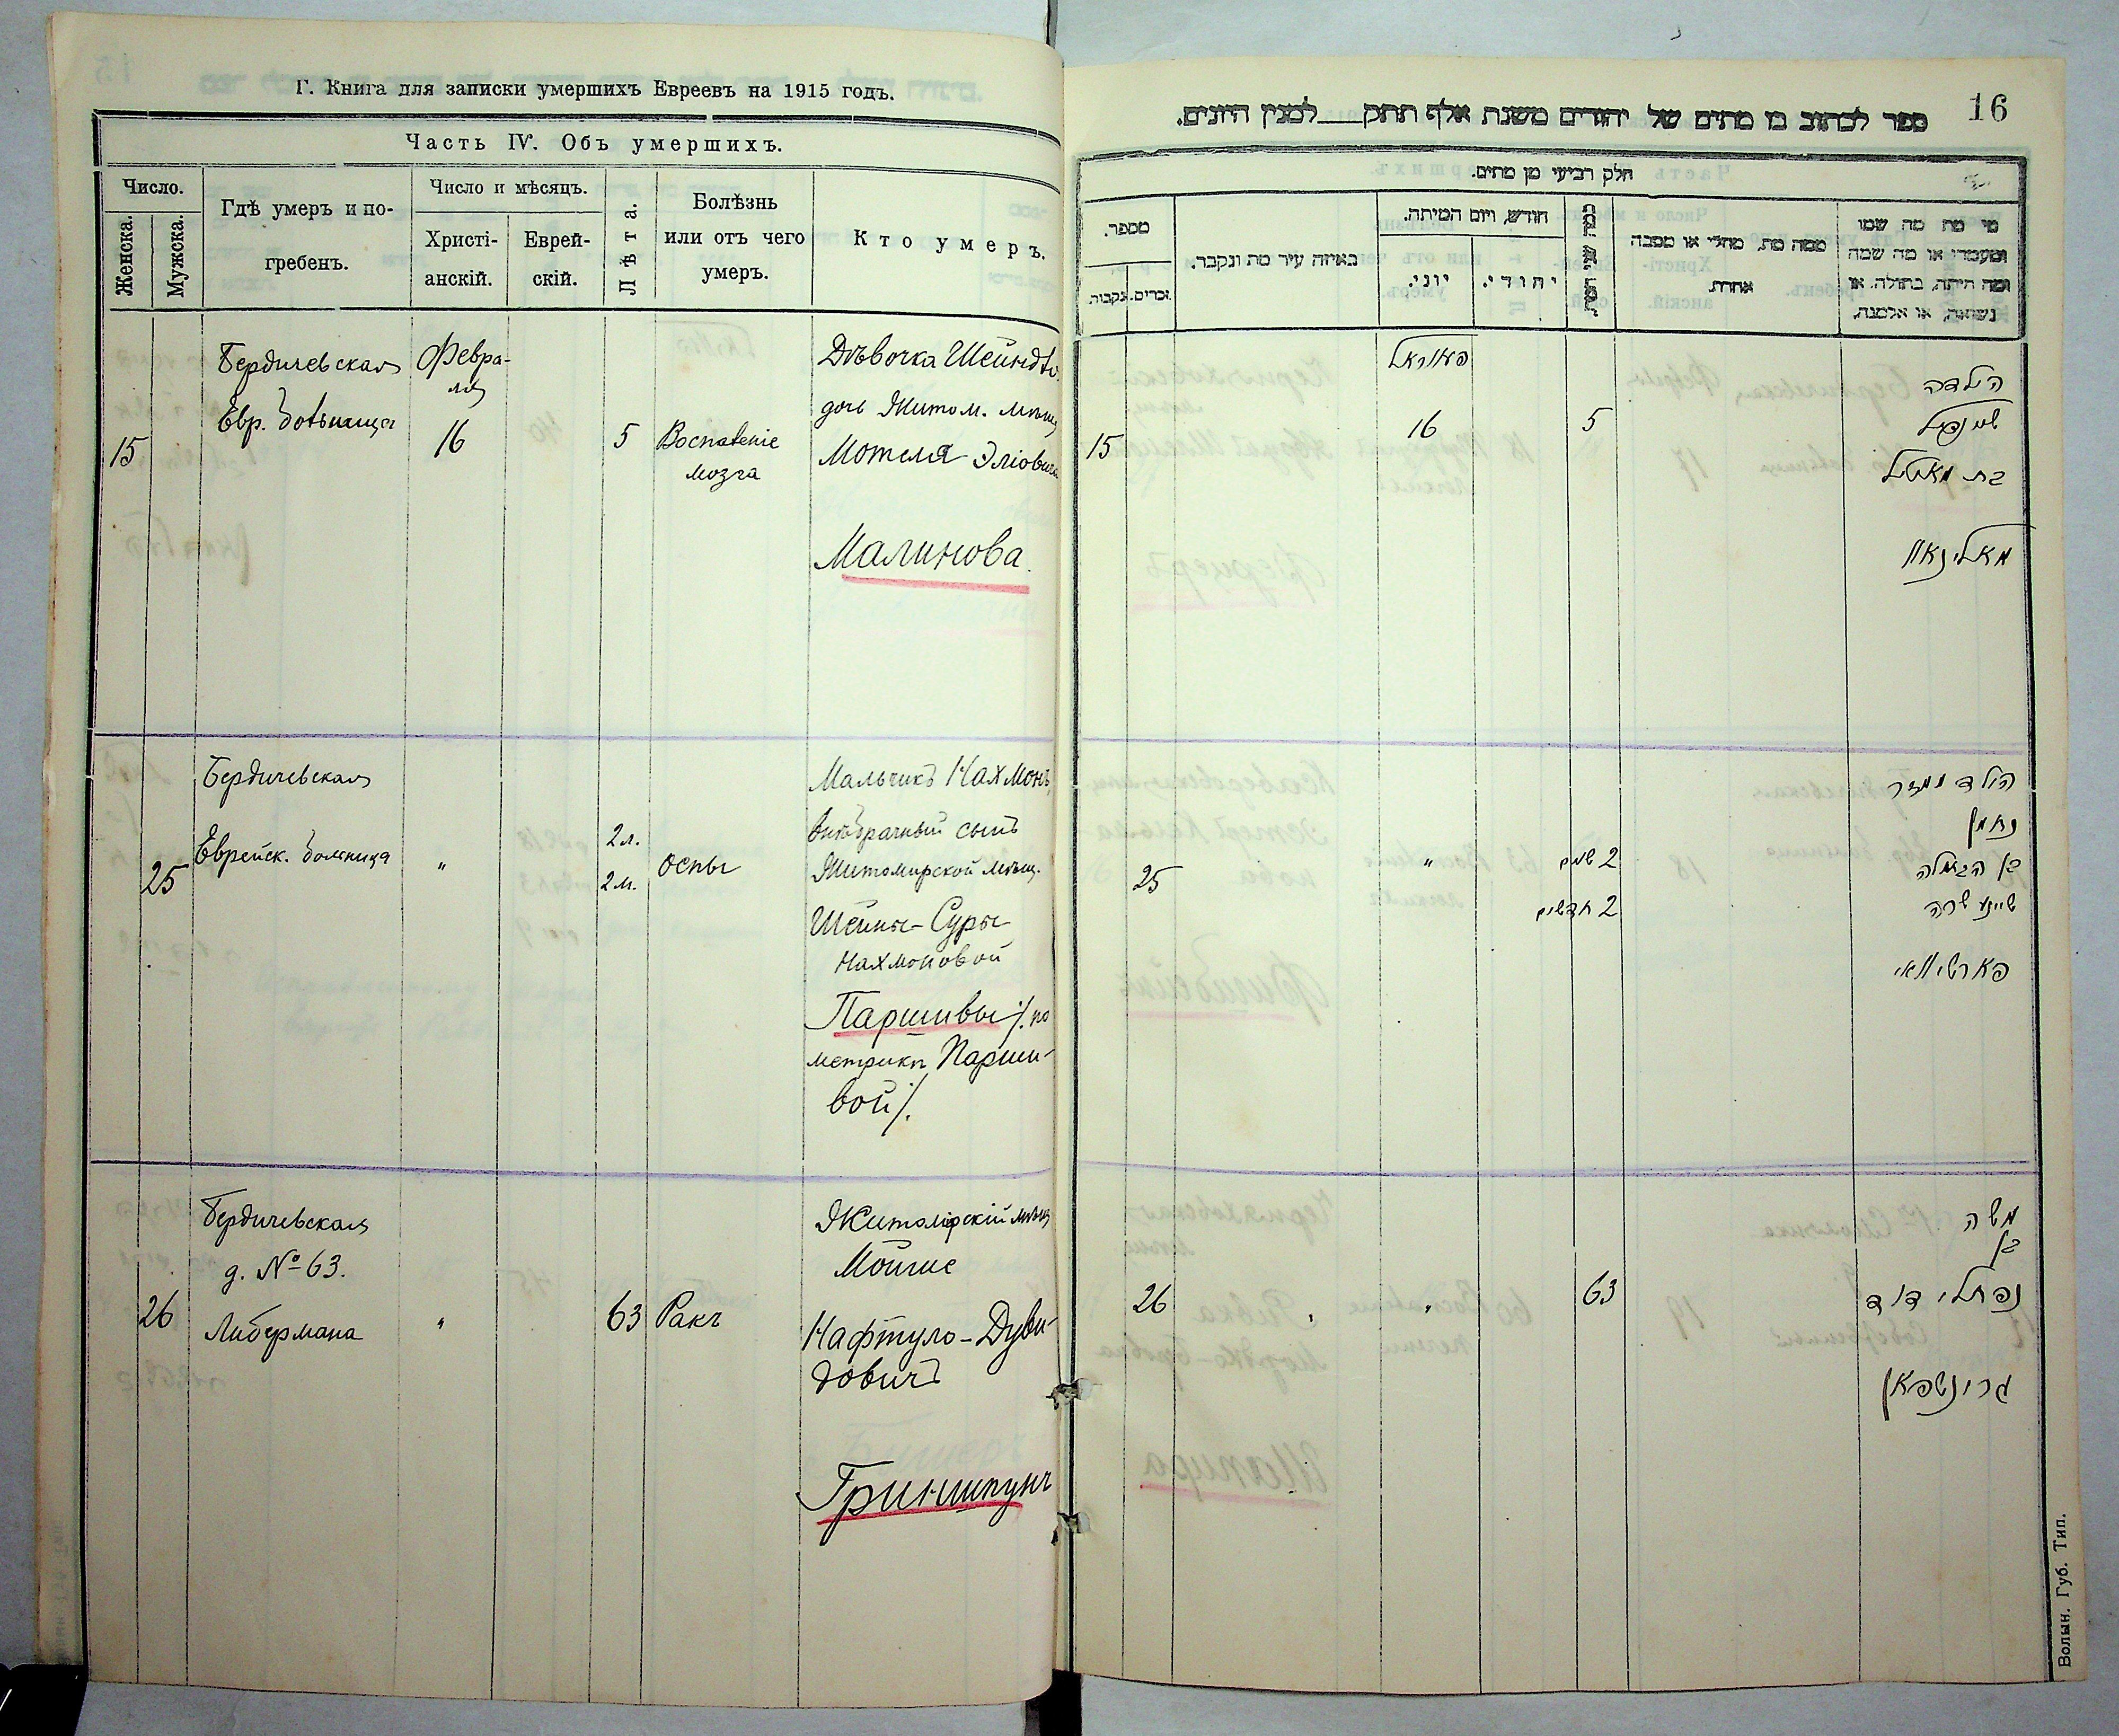 Г. Книга для записки умершихъ Евреевъ на 1915 годъ.
Часть IV. Объ умершихъ.
Число.
Женска.
Мужска.
Гдѣ умеръ и по-
гребенъ.
Число и мѣсяцъ.
Христі-
анскій.
Еврей-
скій.
Лѣта.
Болѣзнь
или отъ чего
умеръ.
Кто умеръ.
15
Бердичевская
Евр. больница
Февра-
ля
16
5
Воспаленіе
мозга
Дѣвочка Шейндль
дочь Житом. мѣщ
Мотеля Эліовича
Малинова.
25
Бердичевская
Еврейск. больница
"
2 л.
2 м.
оспы
Мальчикъ Нахмонъ,
внѣбрачный сынъ
Житомирской мѣщ.
Шейны-Суры
Нахмоновой
Паршивы /. по
метрикѣ Парши-
вой /.
26
Бердичевская
д. № 63.
Либермана
"
63
Ракъ
Житомірскій мѣщ
Мойше
Нафтуло-Дуви-
довичъ
Гриншпунъ
16
ספר לכתוב בו מתים של יהודים משנת אלף תתק___למנין היונים.
חלק רביעי מן מתים.
מספר.
נקבות.
זכרים.
באיזה עיר מת ונקבר.
חודש, ויום המיתה.
יוני.
יהודי.
ממה מת, מחלי או מסבה
אחרת.
מי מת מה שמו
ומעמדו או מה שמה
ומה היתה, בתולה, או
נשואה, או אלמנה.
15
פעווראל
16
5
הילדה
שיינדיל
בת מאטיל
מאלינאוו
25
"
2 שנים
2 חדשים
הילד ממזר
נחמן
בן הבתולה
שיינע שרה
פארשיוואי
26
"
63
משה
בן
נפתלי דוד
גרינשפאן
Волын. Губ. Тип.